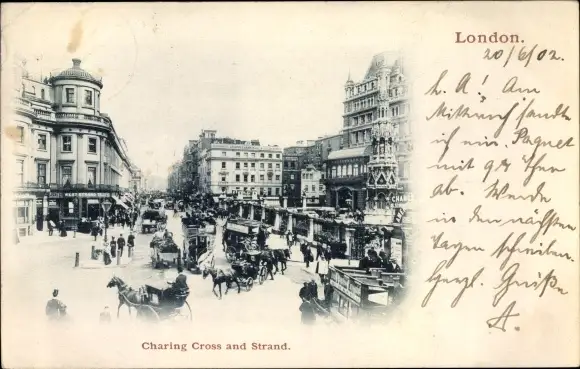 London.
20/6/02.
L. A! Am
Mittwoch sandte
ich ein. Paquet
mit 9 Ihnen
ab. Werde
in den nächsten
Tagen schreiben.
Herzl. Grüße
A.
CHARING
Charing Cross and Strand.